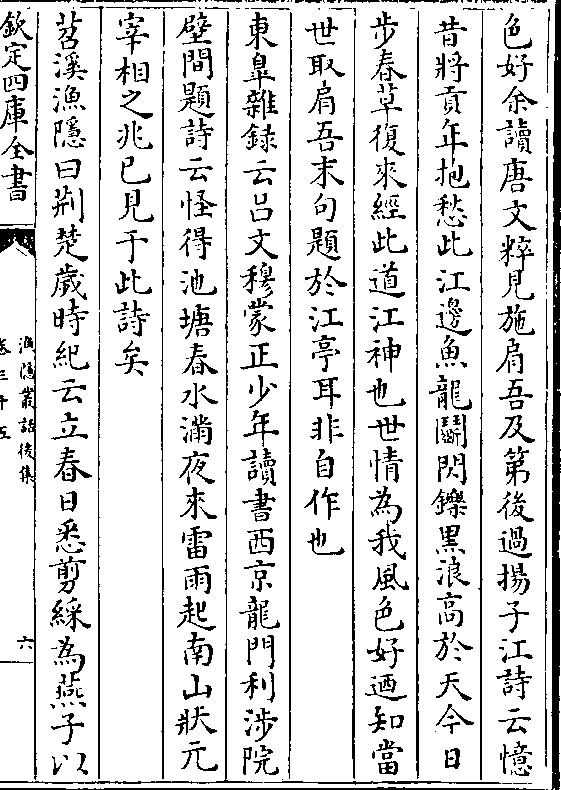 色好余讀唐文粹見施肩吾及第後過揚子江詩云憶
昔將貢年抱愁此江邊魚龍鬬閃鑠黒浪高於天今日
步春草復來經此道江神也世情為我風色好迺知當
世取肩吾末句題於江亭耳非自作也
東臯雜録云吕文穆蒙正少年讀書西京龍門利涉院
壁間題詩云怪得池塘春水滿夜來雷雨起南山狀元
宰相之兆已見于此詩矣
苕溪漁隱曰荆楚歲時紀云立春日悉剪綵為燕子以
欽定四庫全書
漁隱叢話後集
卷三十五
六